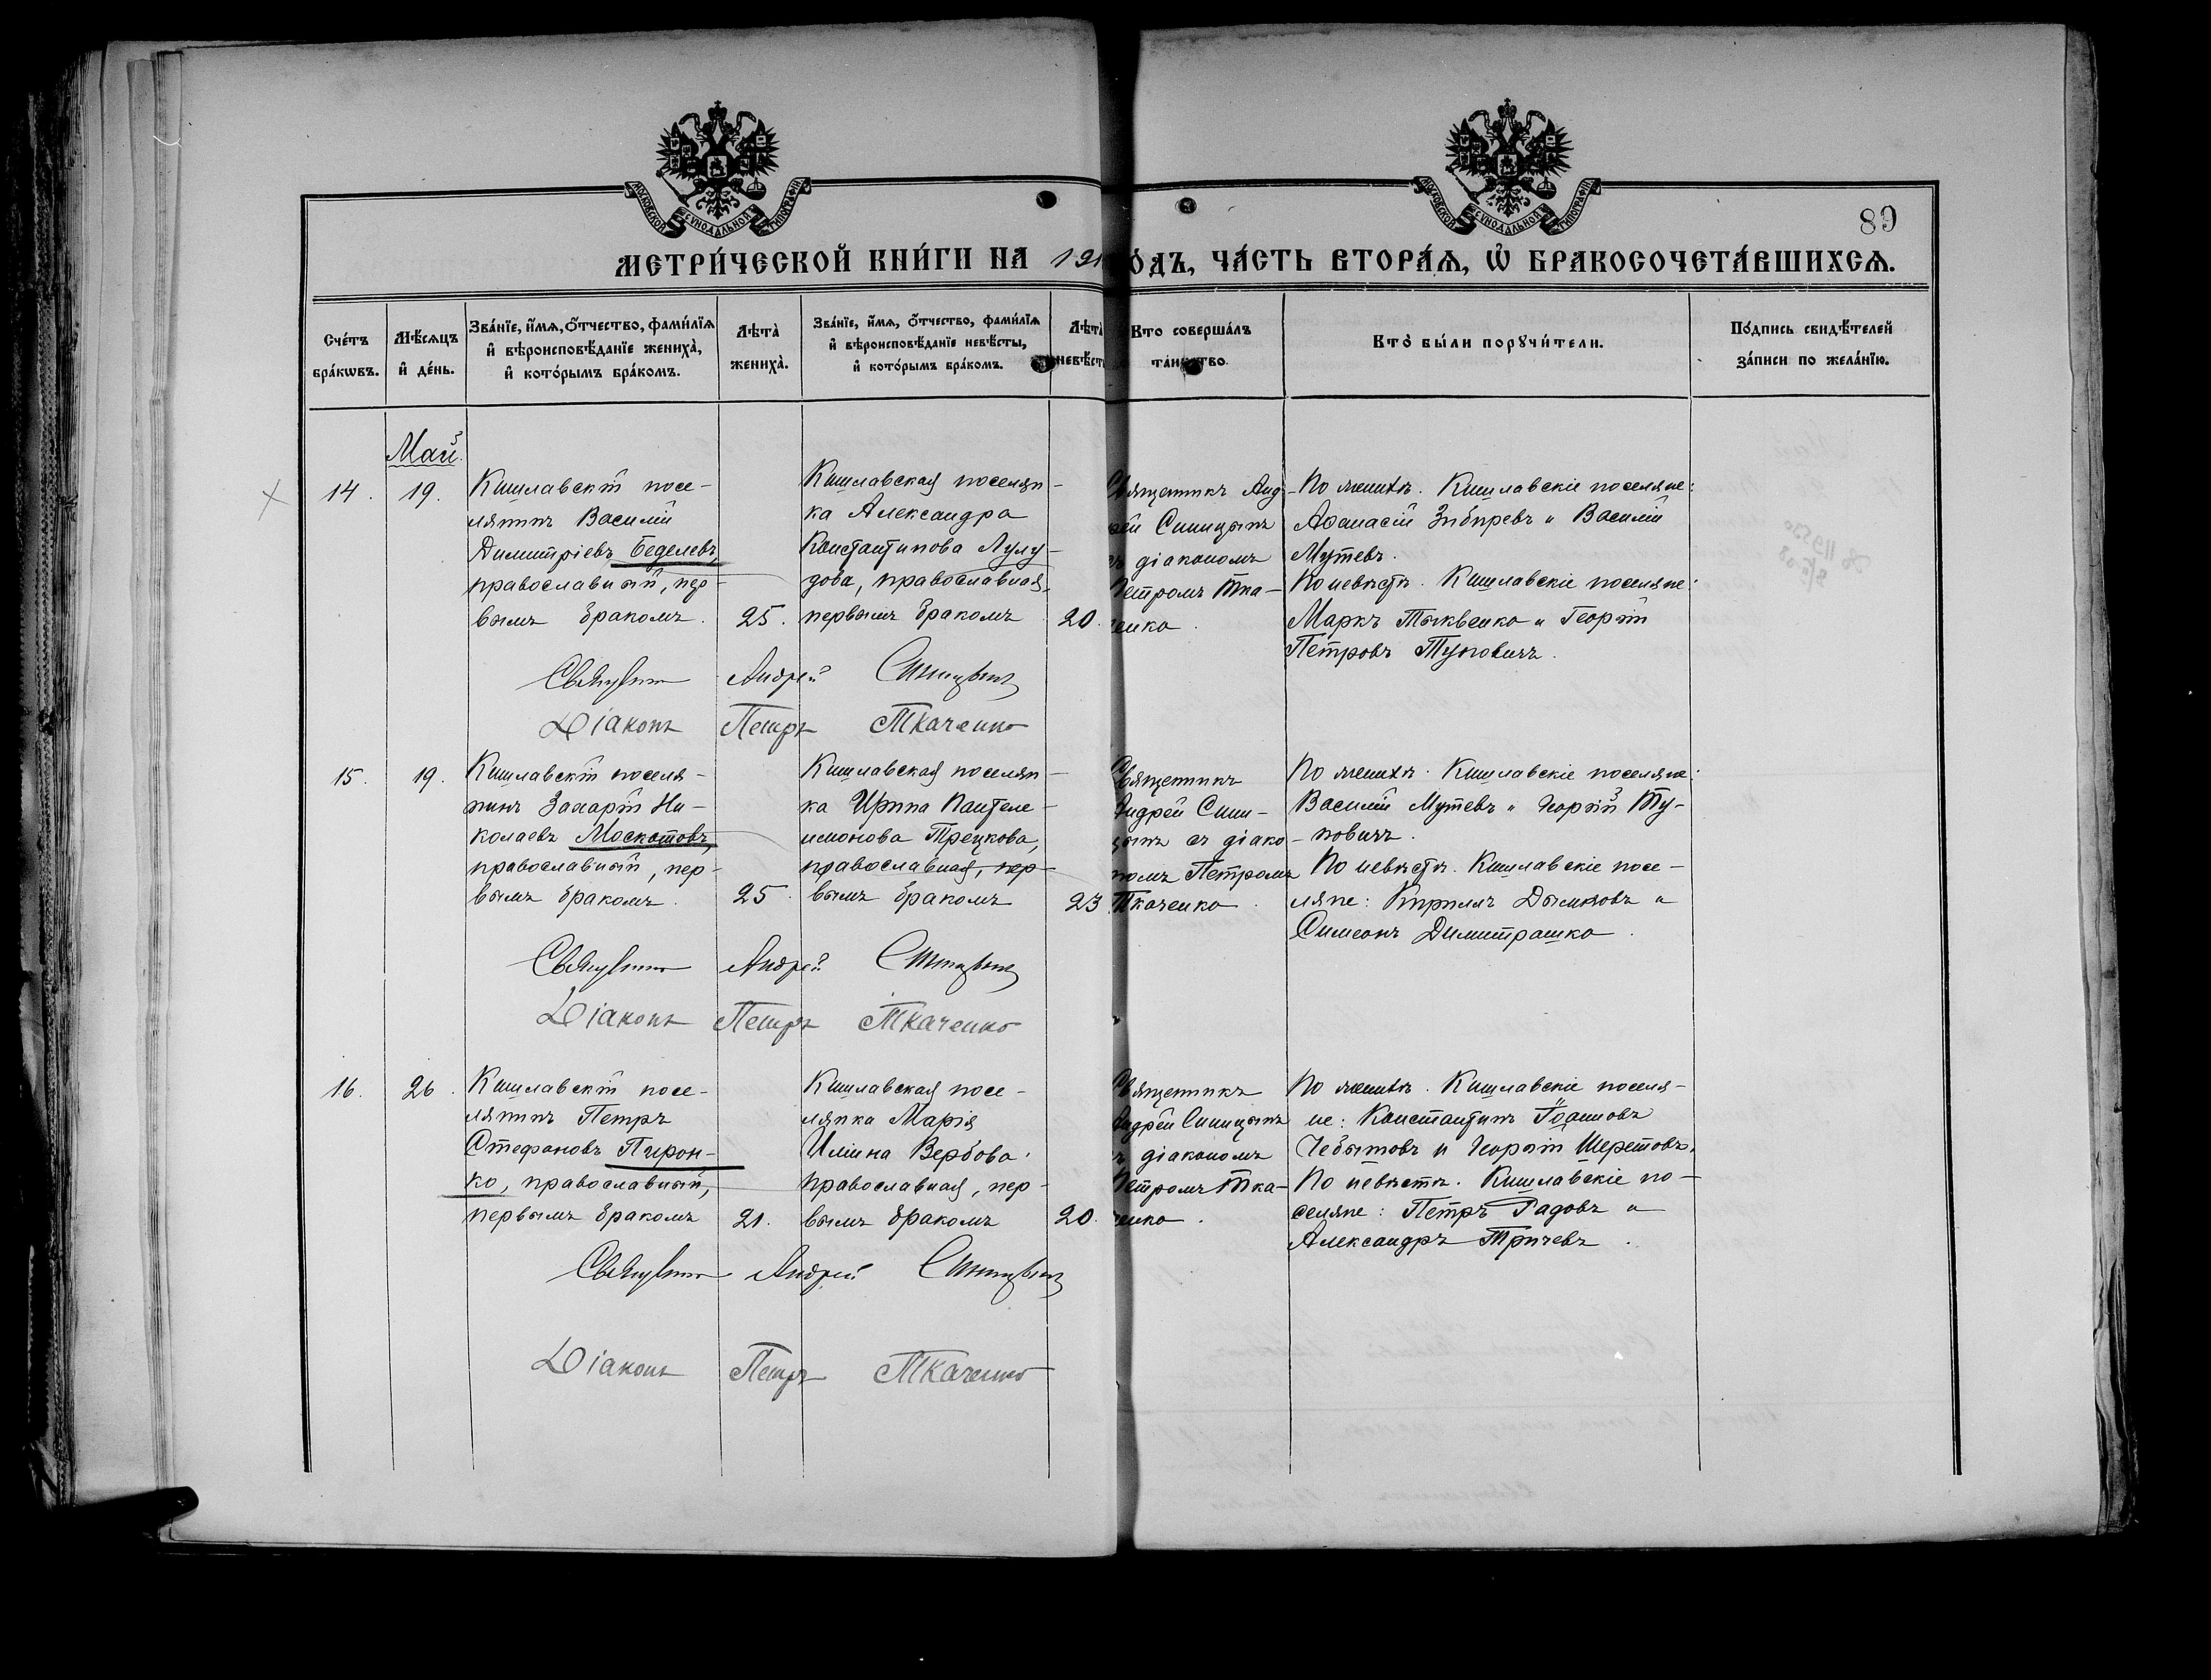 МОСКОВСКОЙ СѴНОДАЛЬНОЙ ТИПОГРАФІИ
МОСКОВСКОЙ СѴНОДАЛЬНОЙ ТИПОГРАФІИ
89
МЕТРИ́ЧЕСКОЙ КНИ́ГИ НА 191
О́ДЪ, ЧА́СТЬ ВТОРА́Ѧ, Ѡ҆ БРАКОСОЧЕТА́ВШИХСѦ.
Сче́тъ бра́кѡвъ.
Мѣ́сяцъ и҆ де́нь.
Зва́нїе, и҆́мя, ѻ҆́тчество, фами́лїя
и҆ вѣроисповѣ́данїе жениха̀,
и҆ кото́рымъ бра́комъ.
Лѣта̀ жениха̀.
Зва́нїе, и҆́мя, ѻ҆́тчество, фами́лїя
и҆ вѣроисповѣ́данїе невѣ́сты,
и҆ кото́рымъ бра́комъ.
Лѣта̀ невѣ́ст
Кто соверша́лъ
та́инство.
Кто̀ бы́ли порꙋчи́тели.
По́дпись свидѣ́телей
за́писи по жела́нїю.
Май.
14.
19.
Кишлавскій посе-
лянинъ Василій
Димитріевъ Беделевъ,
православный, пер-
вымъ бракомъ.
25.
Кишлавская поселян-
ка Александра
Константинова Лулу-
дова, православная,
первымъ бракомъ
20.
Священникъ Анд-
рей Синицынъ
съ діакономъ
Петромъ Тка-
ченко.
По женихѣ. Кишлавскіе поселяне:
Афанасій Зибиревъ и Василій
Мутевъ.
По невѣстѣ. Кишлавскіе поселяне:
Маркъ Тыквенко и Георгій
Петровъ Туповичъ.
Священникъ Андрей Синицынъ
Діаконъ Петръ Ткаченко
15.
19.
Кишлавскій поселя-
нинъ Захарій Ни-
колаевъ Москатовъ,
православный, пер-
вымъ бракомъ.
25.
Кишлавская поселян-
ка Ирина Пантеле-
имонова Трецкова,
православная, пер-
вымъ бракомъ
23
Священникъ
Андрей Сини-
цынъ съ діако-
номъ Петромъ
Ткаченко.
По женихѣ. Кишлавскіе поселяне:
Василій Мутевъ и Георгій Ту-
повичъ.
По невѣстѣ. Кишлавскіе посе-
ляне: Кириллъ Дымовъ и
Симеонъ Димитрашко.
Священникъ Андрей Синицынъ
Діаконъ Петръ Ткаченко
16.
26.
Кишлавскій посе-
лянинъ Петръ
Стефановъ Пирон-
ко, православный,
первымъ бракомъ
21.
Кишлавская посе-
лянка Марія
Иліина Вербова.
православная, пер-
вымъ бракомъ
20.
Священникъ
Андрей Синицынъ
съ діакономъ
Петромъ Тка-
ченко.
По женихѣ. Кишлавскіе поселя-
не: Константинъ Іоанновъ
Чебытовъ и Георгій Шеретовъ.
По невѣстѣ. Кишлавскіе по-
селяне: Петръ Радовъ и
Александръ Тричевъ.
Священникъ Андрей Синицынъ
Діаконъ Петръ Ткаченко